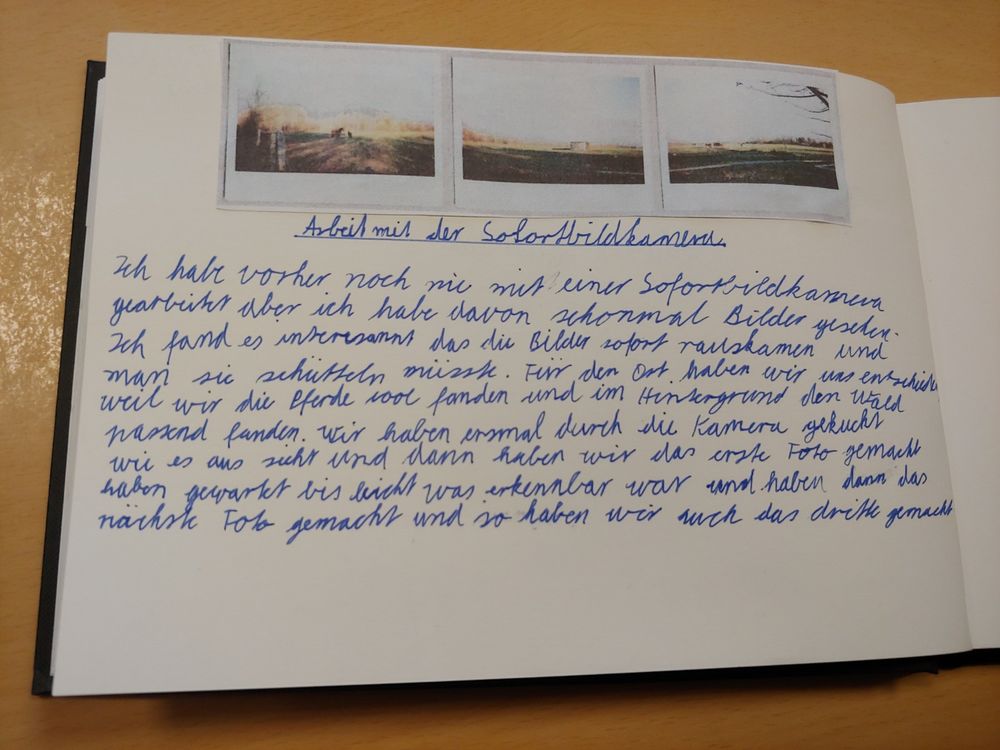 Arbeit mit der Sofortbildkamera
Ich habe vorher noch nie mit einer Sofortbildkamera
gearbeitet aber ich habe davon schonmal Bilder gesehen.
Ich fand es interesannt das die Bilder sofort rauskamen und
man sie schütteln müsste. Für den Ort haben wir uns entschieden
weil wir die Pferde cool fanden und im Hintergrund den Wald
passend fanden. Wir haben ersmal durch die Kamera gekuckt
wie es aus sieht und dann haben wir das erste Foto gemacht
haben gewartet bis leicht was erkennbar war und haben dann das
nächste Foto gemacht und so haben wir auch das dritte gemacht